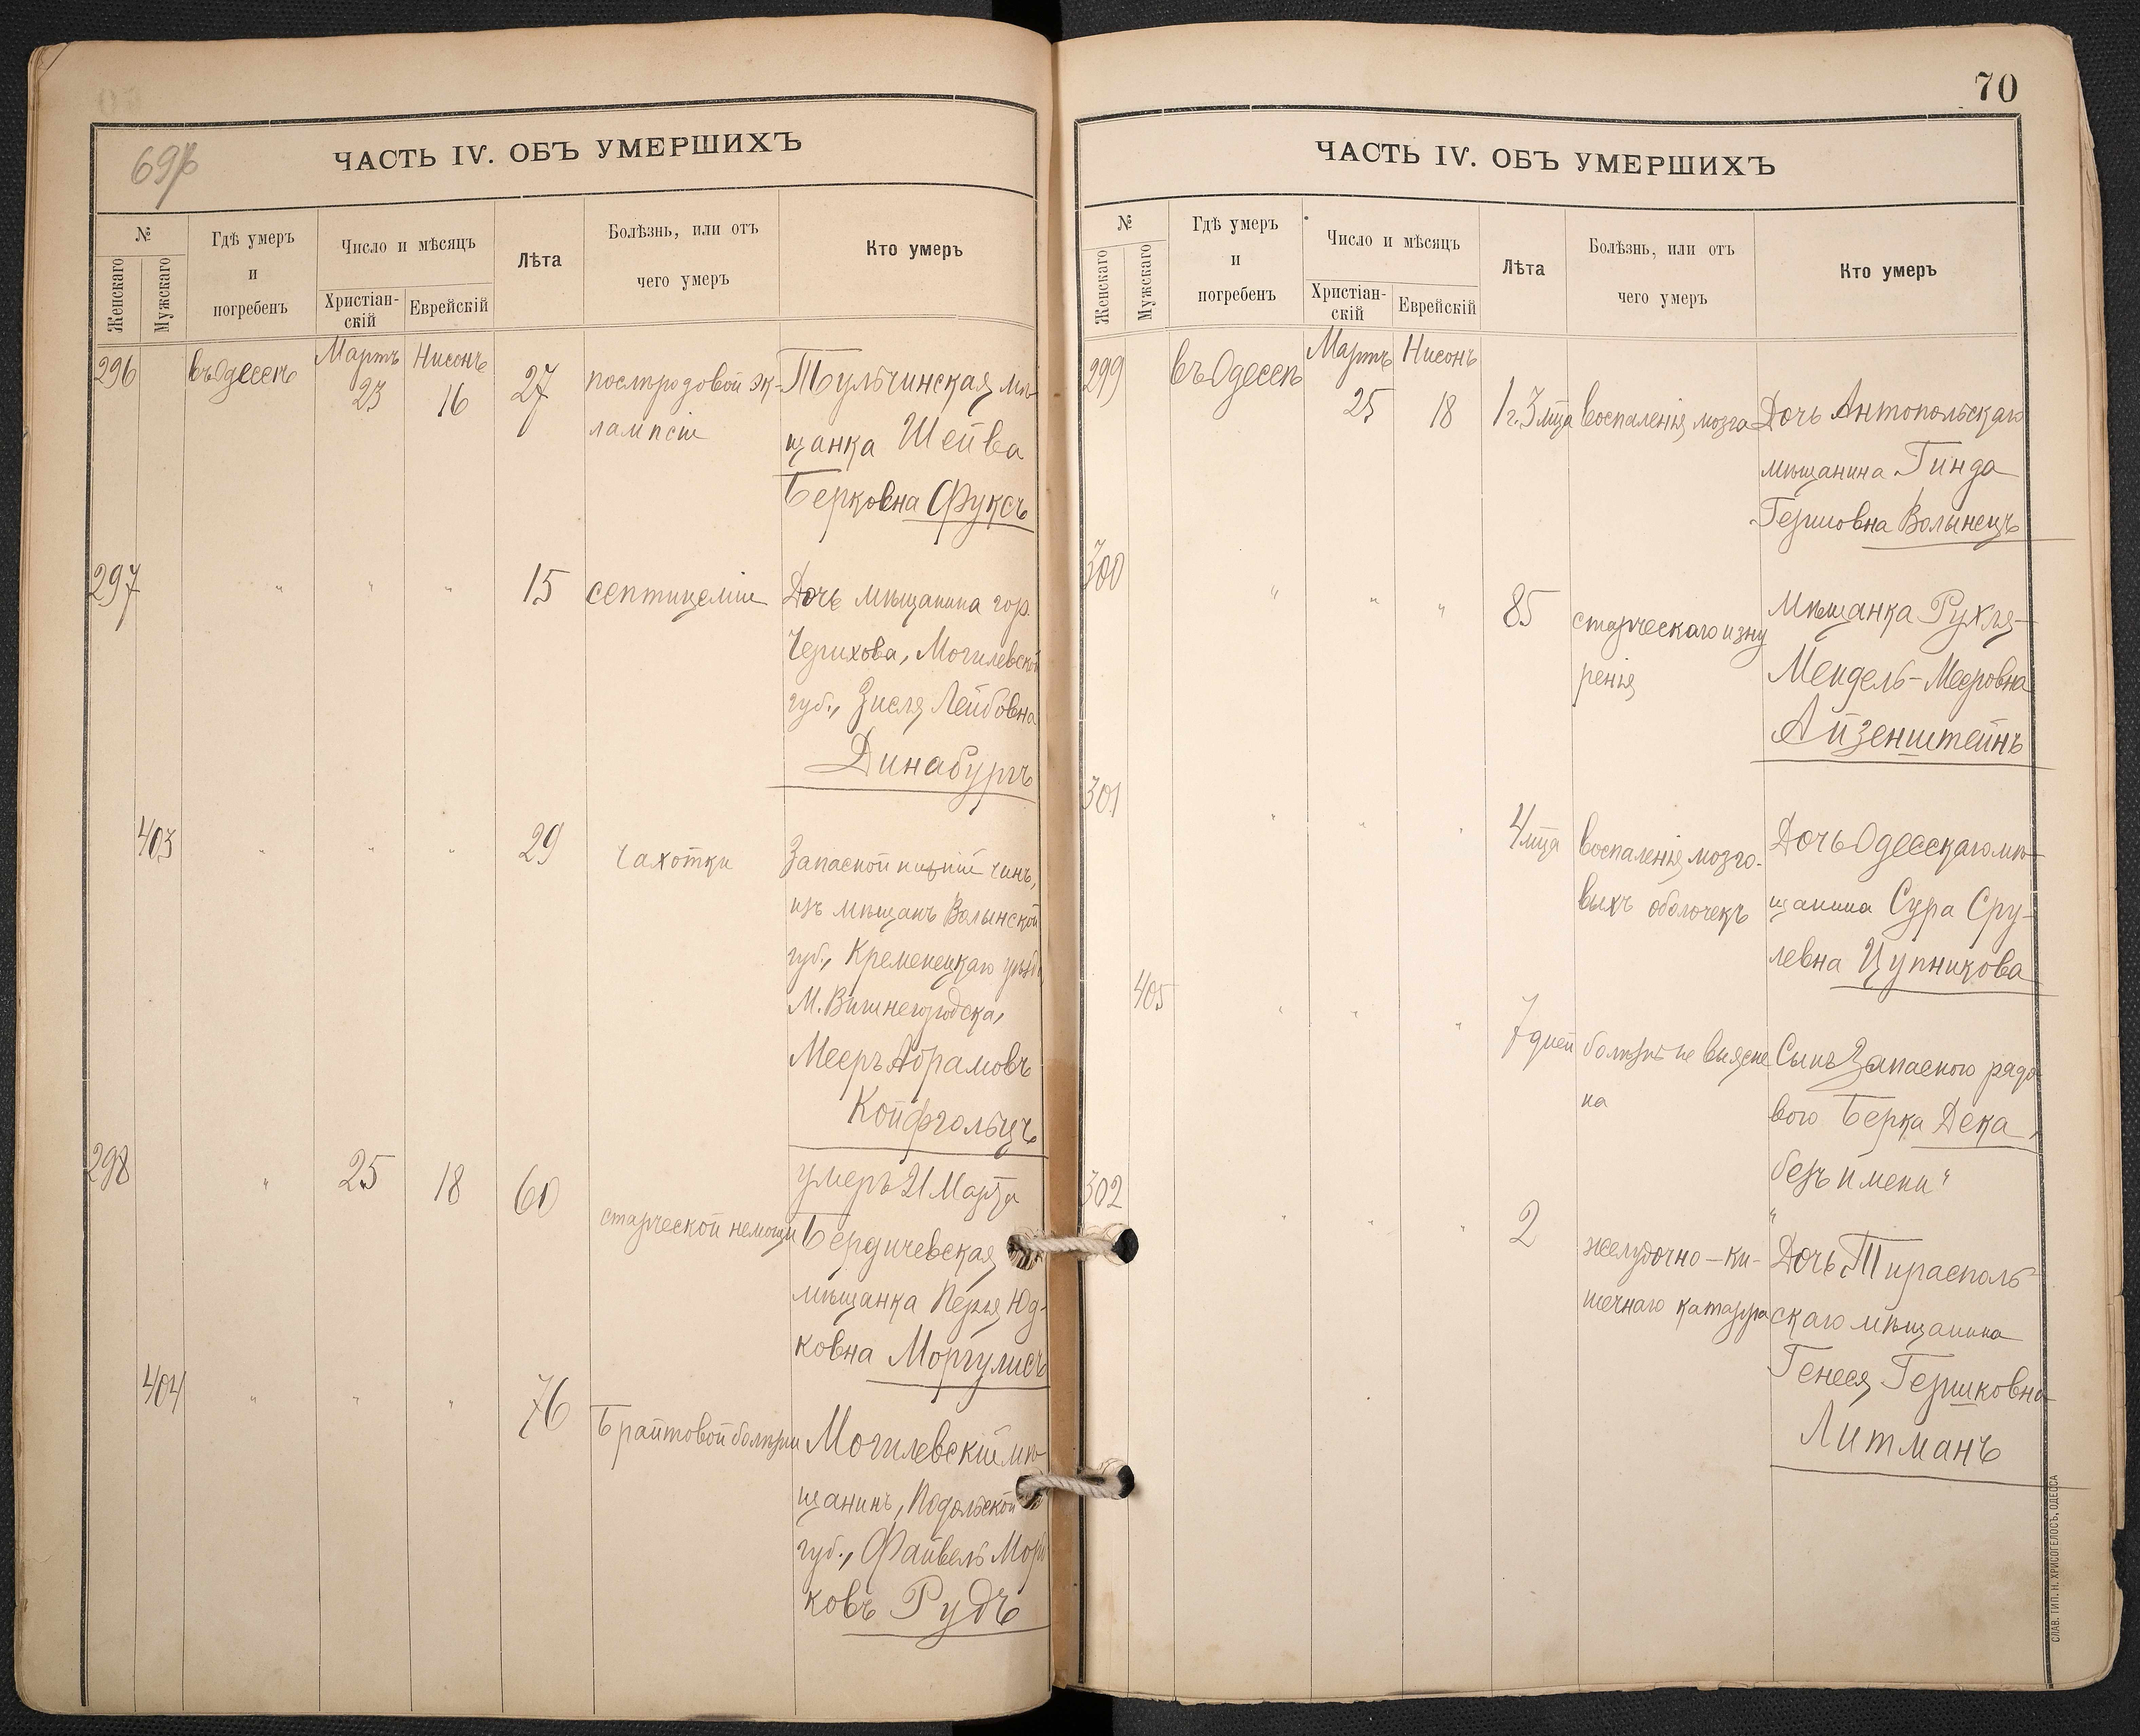 69
ЧАСТЬ IV. ОБЪ УМЕРШИХЪ
№
Женскаго
Мужскаго
Гдѣ умеръ
и
погребенъ
Число и мѣсяцъ
Христіан-
скій
Еврейскій
Лѣта
Болѣзнь, или отъ
чего умеръ
Кто умеръ
296 въ Одессѣ Мартъ 23 Нисонъ 16 27 послѣродовой эк- Тульчинская мѣ-
лампсіи щанка Шейва
Берковна Фуксъ
297 " " " 15 септицеміи Дочь мѣщанина гор.
Черикова, Могилевской
губ., Зисля Лейбовна
Динабургъ
403 " " " 29 чахотки Запасной нижній чинъ,
изъ мѣщанъ Волынской
губ., Кременецкаго уѣзда
М. Вишнегородска,
Мееръ Абрамовъ
Койфгольцъ
умеръ 21 Марта
298 " 25 18 60 старческой немощи Бердичевская
мѣщанка Перля Юд-
ковна Моргулисъ
404 " " " 76 Брайтовой болѣзни Могилевскій мѣ-
щанинъ, Подольской
губ., Файвель Морд
ковъ Рудъ
70
ЧАСТЬ IV. ОБЪ УМЕРШИХЪ
№
Женскаго
Мужскаго
Гдѣ умеръ
и
погребенъ
Число и мѣсяцъ
Христіан-
скій
Еврейскій
Лѣта
Болѣзнь, или отъ
чего умеръ
Кто умеръ
299 въ Одессѣ Мартъ 25 Нисонъ 18 1 г. 3 мѣца воспаленія мозга Дочь Антопольскаго
мѣщанина Гинда
Гершовна Волынецъ
300 " " " 85 старческаго изну Мѣщанка Рухля-
ренія Мендель-Мееровна
Айзенштейнъ
301 " " " 4 мѣца воспаленія мозго- Дочь Одесскаго мѣ-
выхъ оболочекъ щанина Сура Сру-
левна Цупникова
405 " " " 7 дней болѣзнь не выясне Сынъ Запасного рядо
на вого Берка Дека,
безъ имени"
302 " " " 2 желудочно-ки- Дочь Тирасполь-
шечнаго катарра скаго мѣщанина
Генеся Гершковна
Литманъ
СЛАВ. ТИП. Н. ХРИСОГЕЛОСЪ, ОДЕССА